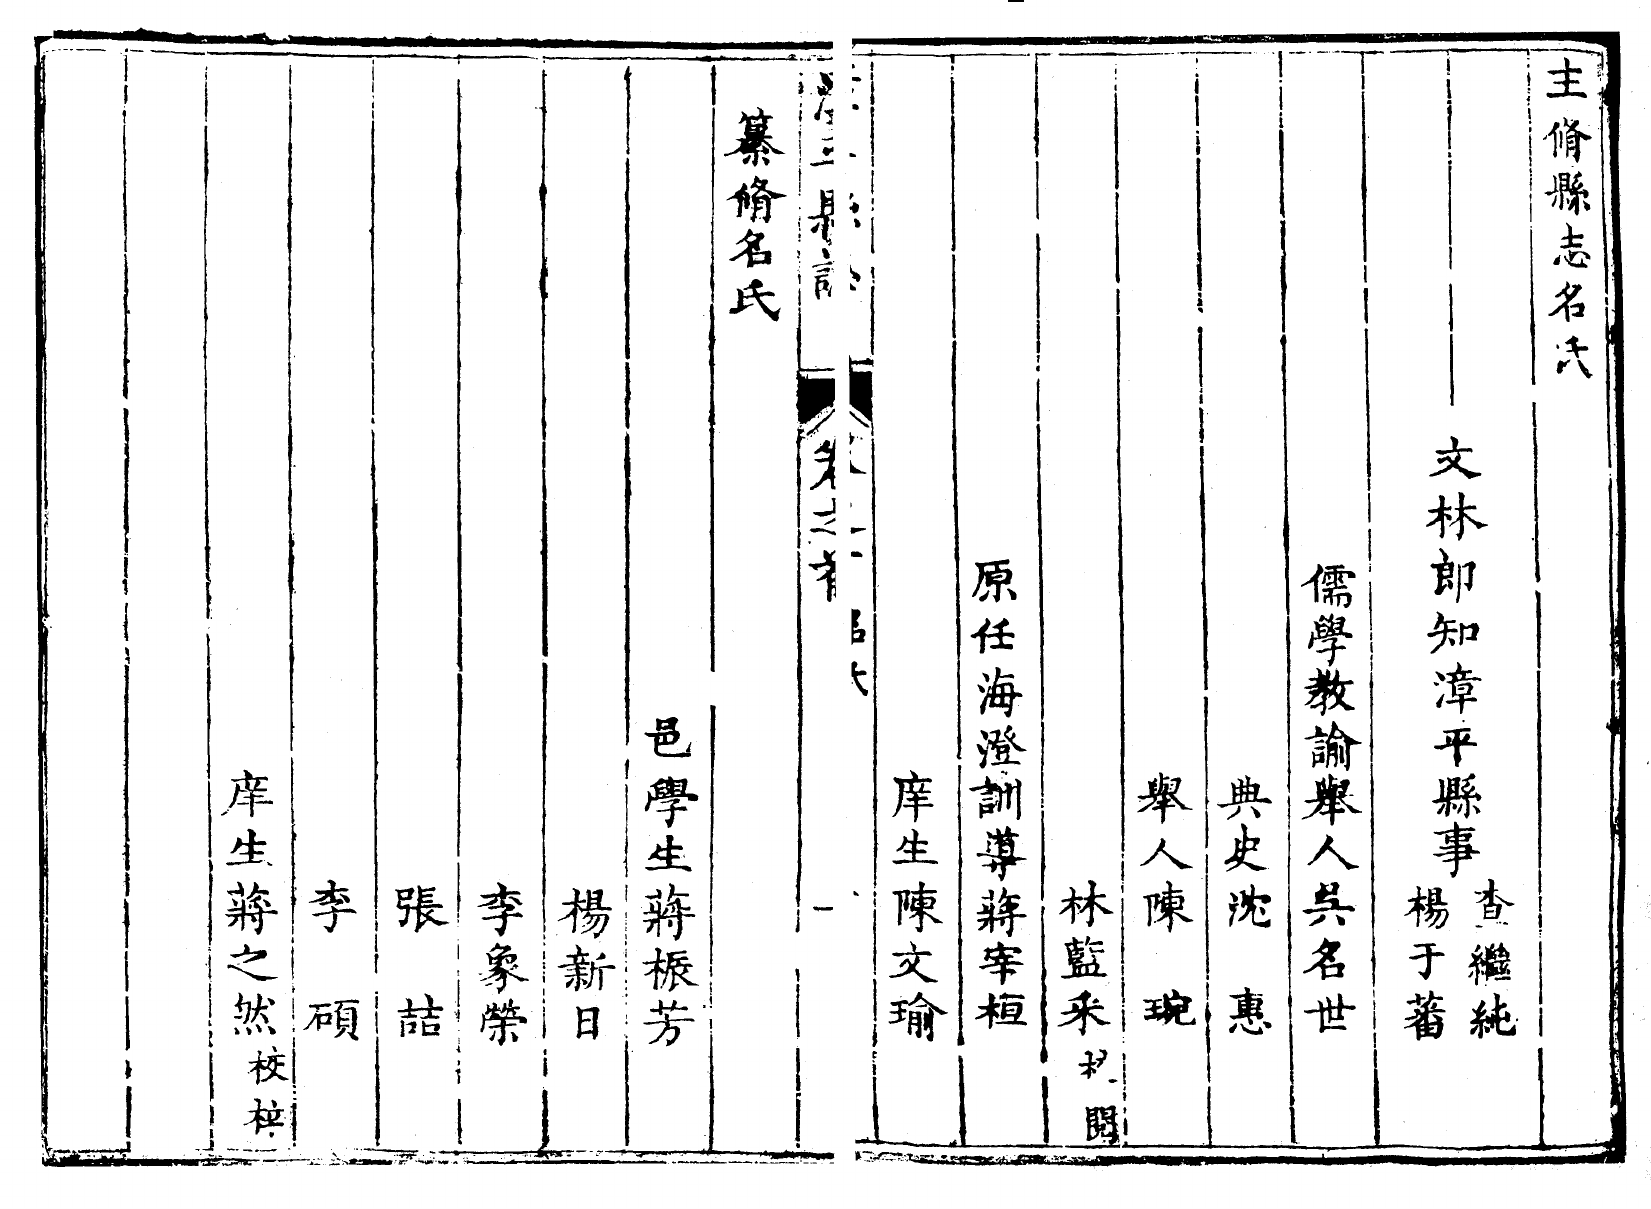 主脩縣志名氏
文林郎知漳平縣事
查繼純
楊于蕃
儒學教諭舉人吳名世
典史沈惠
舉人陳琬
林藍采
閱
原任海澄訓導蔣宰桓
庠生陳文瑜
漳平縣志
卷之首
名氏
一
纂脩名氏
邑學生蔣振芳
楊新日
李象榮
張喆
李碩
庠生蔣之然校梓